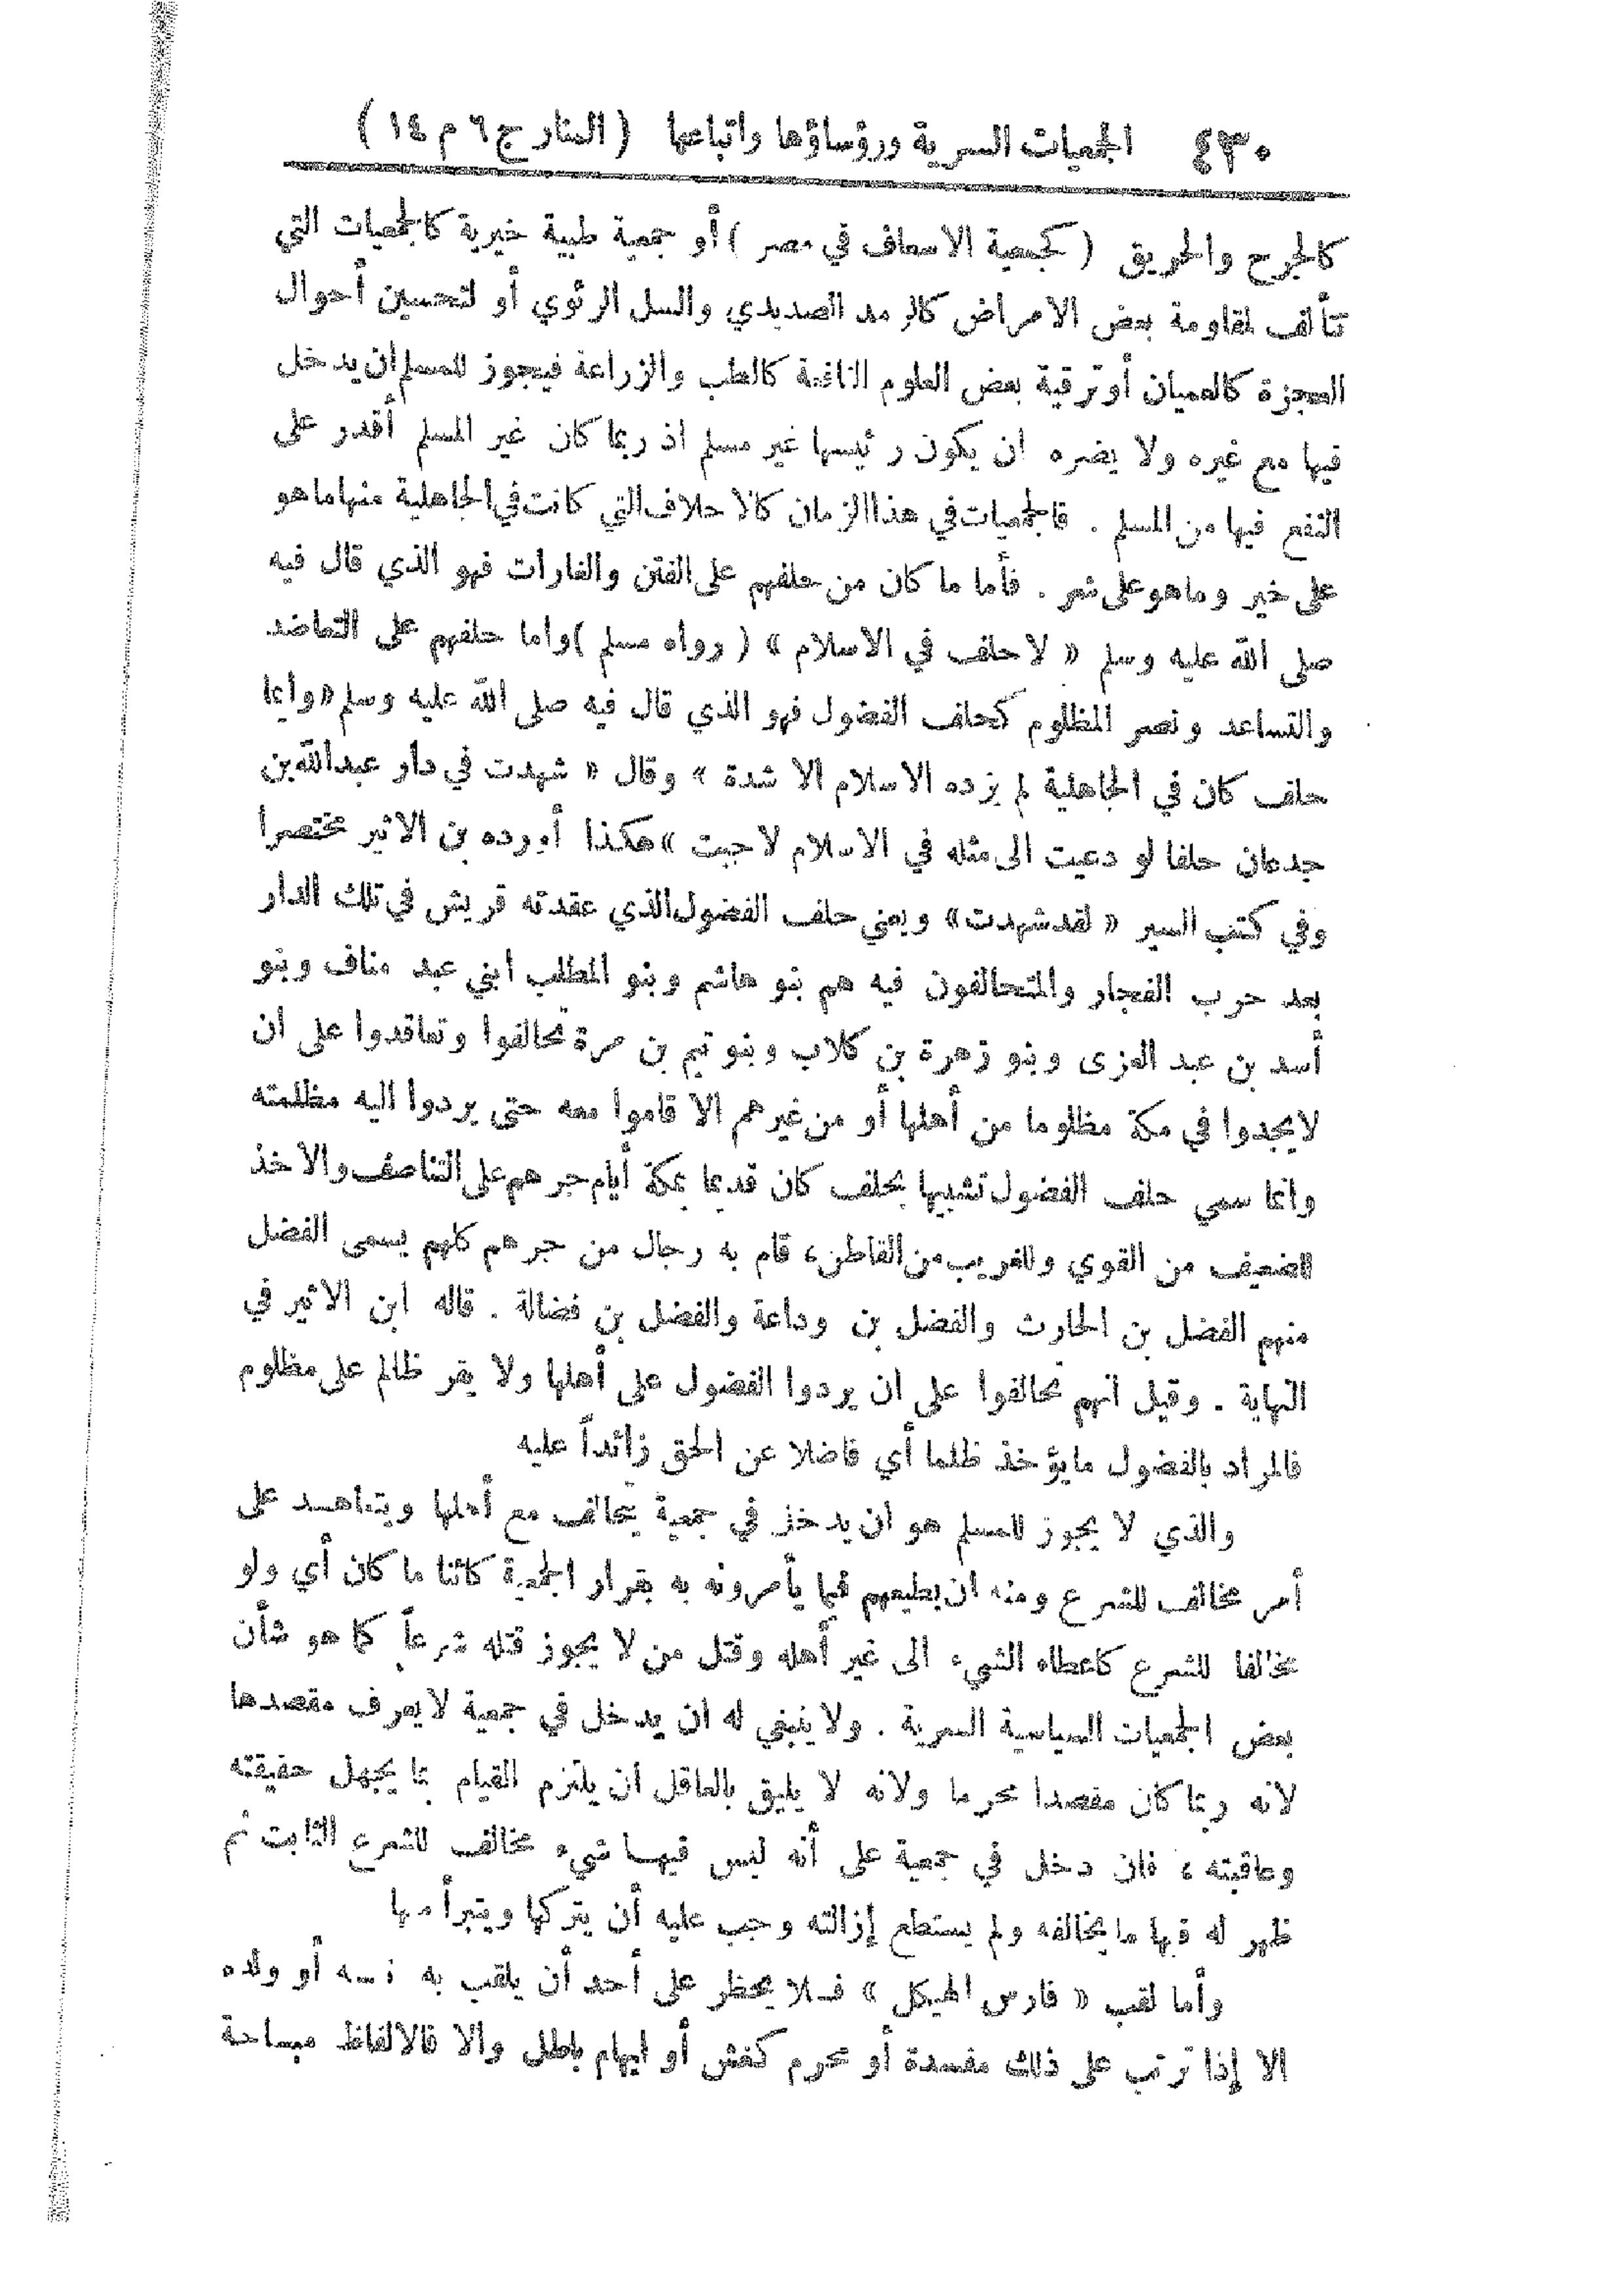 ٤٣٠ الجمعيات السرية ورؤساؤها واتباعها (المنار ج ٦ م ١٤)
كالجرح والحريق (كجمعية الاسعاف في مصر) أو جمعية طبية خيرية كالجمعيات التي
تتألف لمقاومة بعض الامراض كالرمد الصديدي والسل الرئوي أو لتحسين أحوال
العجزة كالعميان أو ترقية بعض العلوم النافعة كالطب والزراعة فيجوز للمسلم ان يدخل
فيها مع غيره ولا يضره ان يكون رئيسها غير مسلم اذ ربما كان غير المسلم أقدر على
النفع فيها من المسلم . فالجمعيات في هذا الزمان كالاحلاف التي كانت في الجاهلية منها ما هو
على خير وما هو على شر . فأما ما كان من حلفهم على الفتن والغارات فهو الذي قال فيه
صلى الله عليه وسلم « لا حلف في الاسلام » (رواه مسلم) واما حلفهم على التعاضد
والتساعد ونصر المظلوم كحلف الفضول فهو الذي قال فيه صلى الله عليه وسلم « وأيما
حلف كان في الجاهلية لم يزده الاسلام الا شدة » وقال « شهدت في دار عبد الله بن
جدعان حلفا لو دعيت الى مثله في الاسلام لاجبت » هكذا أورده بن الاثير مختصرا
وفي كتب السير « لقد شهدت » ويعني حلف الفضول الذي عقدته قريش في تلك الدار
بعد حرب الفجار والمتحالفون فيه هم بنو هاشم وبنو المطلب ابني عبد مناف وبنو
أسد بن عبد العزى وبنو زهرة بن كلاب وبنو تيم بن مرة تحالفوا وتعاقدوا على ان
لا يجدوا في مكة مظلوما من أهلها أو من غيرهم الا قاموا معه حتى يردوا اليه مظلمته
وانما سمي حلف الفضول تشبيها بحلف كان قديما بمكة أيام جرهم على التناصف والاخذ
للضعيف من القوي وللغريب من القاطن، قام به رجال من جرهم كلهم يسمى الفضل
منهم الفضل بن الحارث والفضل بن وداعة والفضل بن فضالة . قاله ابن الاثير في
النهاية . وقيل انهم تحالفوا على ان يردوا الفضول على أهلها ولا يقر ظالم على مظلوم
فالمراد بالفضول ما يؤخذ ظلما أي فاضلا عن الحق زائداً عليه
والذي لا يجوز للمسلم هو ان يدخل في جمعية يحالف مع أهلها ويتعاهد على
أمر مخالف للشرع ومنه ان يطيعهم فيما يأمرونه به بقرار الجمعية كائنا ما كان أي ولو
مخالفا للشرع كاعطاء الشيء الى غير أهله وقتل من لا يجوز قتله شرعاً كما هو شأن
بعض الجمعيات السياسية السرية . ولا ينبغي له ان يدخل في جمعية لا يعرف مقصدها
لانه ربما كان مقصدا محرما ولانه لا يليق بالعاقل ان يلتزم القيام بما يجهل حقيقته
وعاقبته ، فان دخل في جمعية على أنه ليس فيها شيء مخالف للشرع الثابت ثم
ظهر له فيها ما يخالفه ولم يستطع إزالته وجب عليه أن يتركها ويتبرأ منها
وأما لقب « فارس الهيكل » فلا يحظر على أحد أن يلقب به نفسه أو ولده
الا إذا ترتب على ذلك مفسدة أو محرم كغش أو ايهام باطل والا فالالفاظ مباحة